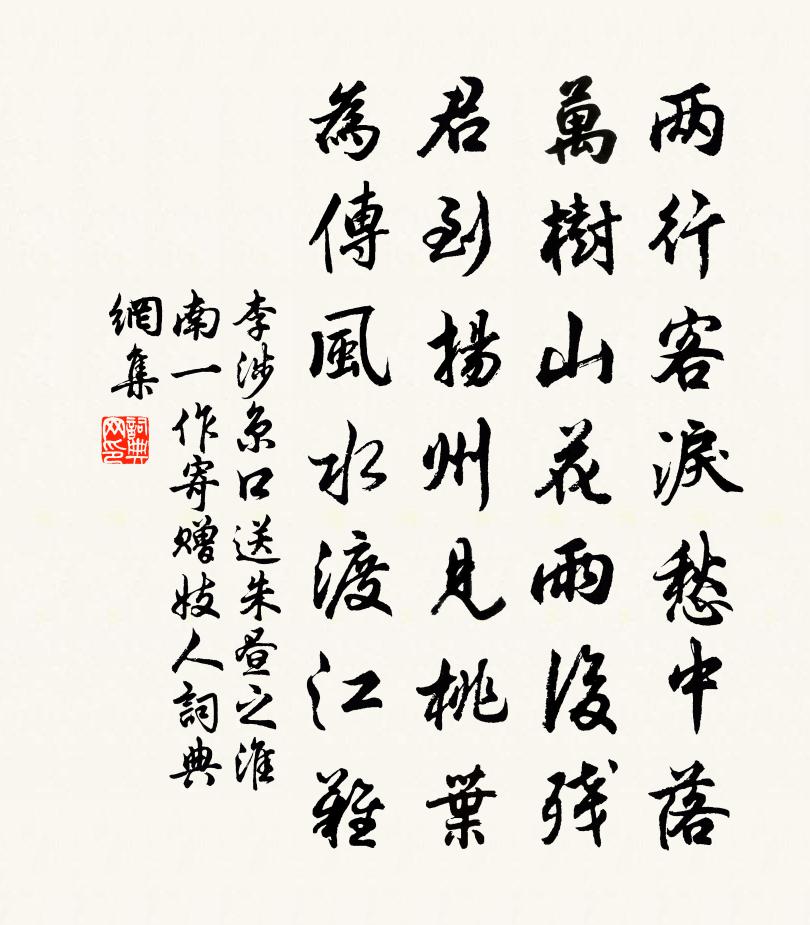 两行客淚愁中落
萬樹山花雨後残
君到揚州見桃葉
為傳風水渡江難
李涉京口送朱晝之淮
南一作寄贈妓人詞典
網集
詞典网印